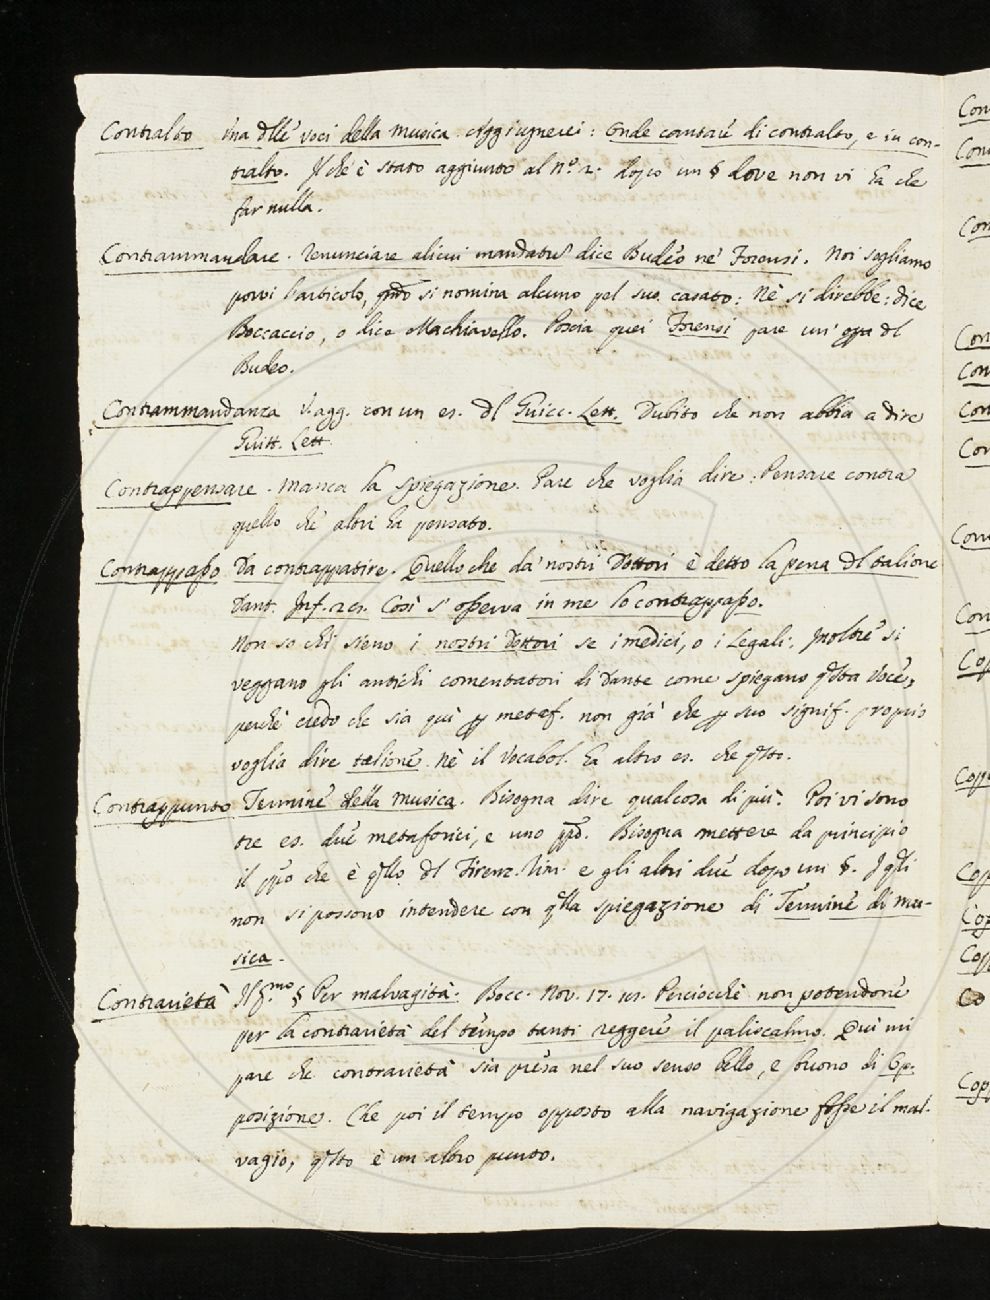 Contralto una dlle voci della musica. Aggiugnerei: onde cantare di contralto, e in con-
tralto. Il che è stato aggiunto al n.º 2. dopo un § dove non vi ha che
far nulla.
Contrammandare. renunciare alicui mandatum dice Budeo ne' Forensi. Noi sogliamo
porvi l'articolo, qndo si nomina alcuno pel suo casato: Nè si direbbe: dice
Boccaccio, o dice Machiavello. Poscia quei Forensi pare un' opa dl
Budeo.
Contrammandanza V. agg. con un es. dl Guicc. Lett. Dubito che non abbia a dire
Guitt. Lett.
Contrappensare. manca la spiegazione. Pare che voglia dire: Pensare contra
quello ch' altri ha pensato.
Contrappasso Da contrappatire. Quello che da' nostri Dottori è detto la pena dl talione
Dant. Inf. 28. Così s' osserva in me lo contrappasso.
Non so chi sieno i nostri Dottori se i medici, o i Legali. Inoltre si
veggano gli antichi comentatori di Dante come spiegano qsta voce,
perchè credo che sia quì p metaf. non già che p suo signif. proprio
voglia dire talione nè il Vocabol. ha altro es. che qsto.
Contrappunto Termine della musica. Bisogna dire qualcosa di più. Poi vi sono
tre es. due metaforici, e uno ppo. Bisogna mettere da principio
il ppo che è qllo dl Firenz. rim. e gli altri due dopo un §. I qli
non si possono intendere con qlla spiegazione di Termine di mu-
sica.
Contrarietà Il §.mo § Per malvagità. Bocc. Nov. 17. Perciocchè non potendone
per la contrarietà del tempo tanti reggere il paliscalmo. Qui mi
pare che contrarietà sia presa nel suo senso bello, e buono di Op-
posizione. Che poi il tempo opposto alla navigazione fosse il mal-
vagio, qsto è un altro punto.